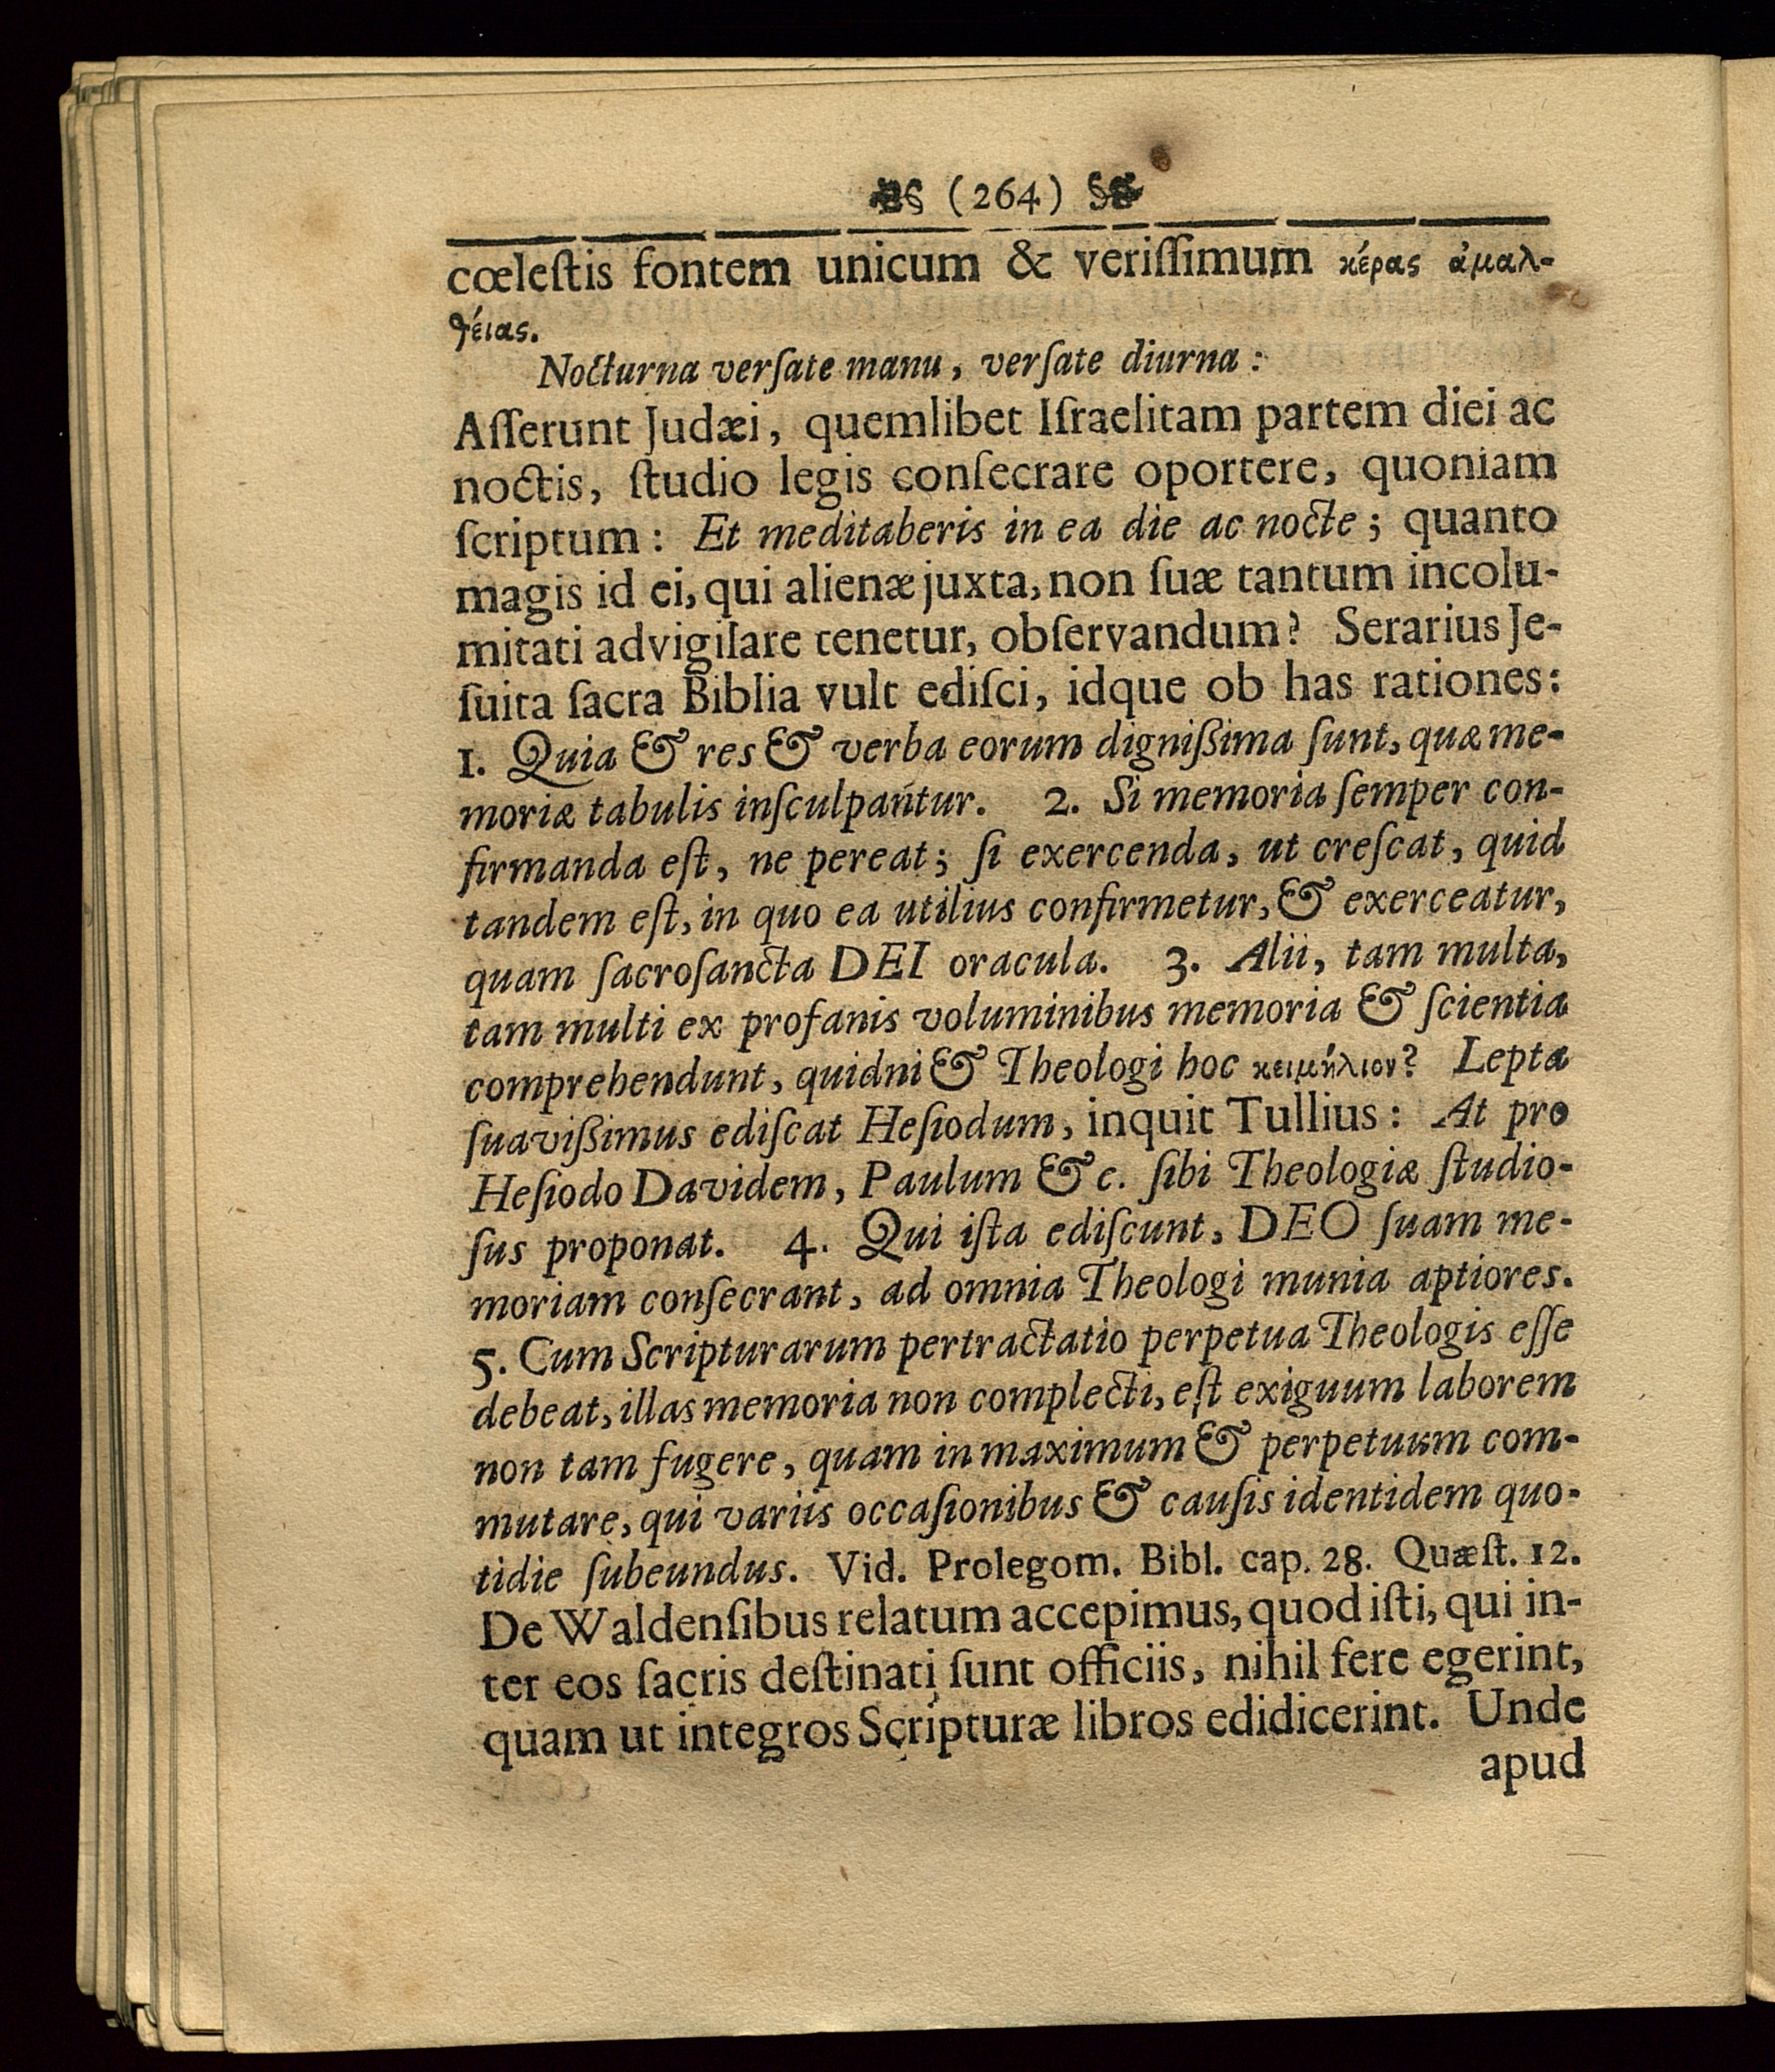 (264)
cœleſtis fontem unicum & veriſſimum κέρας ἀμαλ-
θέιας.
Nocturna verſate manu, verſate diurna:
Aſſerunt Judæi, quemlibet Iſraelitam partem diei ac
noctis, ſtudio legis conſecrare oportere, quoniam
ſcriptum: Et meditaberis in ea die ac nocte; quanto
magis id ei, qui alienæ juxta, non ſuæ tantum incolu-
mitati advigilare tenetur, obſervandum? Serarius Je-
ſuita ſacra Biblia vult ediſci, idque ob has rationes:
1. Quia & res & verba eorum digniſſima ſunt, quæ me-
moriæ tabulis inſculpantur. 2. Si memoria ſemper con-
firmanda eſt, ne pereat; ſi exercenda, ut creſcat, quid
tandem eſt, in quo ea utilius confirmetur, & exerceatur,
quam ſacroſancta DEI oracula. 3. Alii, tam multa,
tam multi ex profanis voluminibus memoria & ſcientia
comprehendunt, quidni & Theologi hoc κειμήλιον? Lepta
ſuaviſſimus ediſcat Heſiodum, inquit Tullius: At pro
Heſiodo Davidem, Paulum &c. ſibi Theologiæ ſtudio-
ſus proponat. 4. Qui iſta ediſcunt, DEO ſuam me-
moriam conſecrant, ad omnia Theologi munia aptiores.
5. Cum Scripturarum pertractatio perpetua Theologis eſſe
debeat, illas memoria non complecti, eſt exiguum laborem
non tam fugere, quam in maximum & perpetuum com-
mutare, qui variis occaſionibus & cauſis identidem quo-
tidie ſubeundus. Vid. Prolegom. Bibl. cap. 28. Quæſt. 12.
De Waldenſibus relatum accepimus, quod iſti, qui in-
ter eos ſacris deſtinati ſunt officiis, nihil fere egerint,
quam ut integros Scripturæ libros edidicerint. Unde
apud